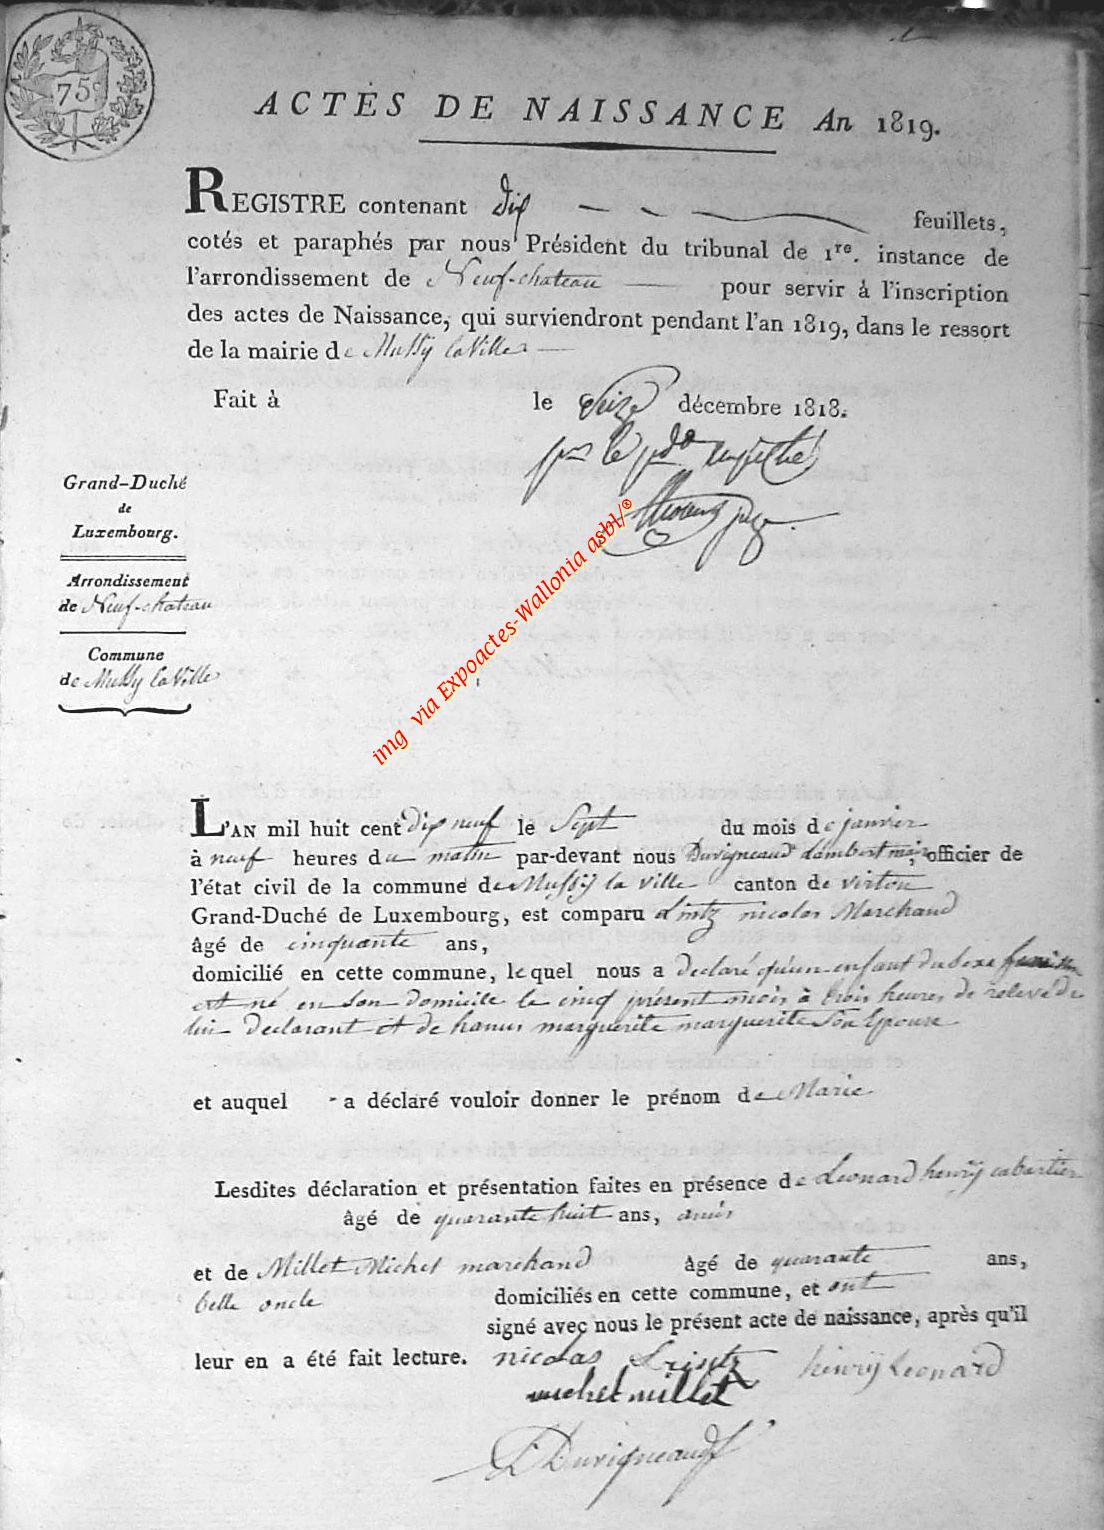 75c
ACTES DE NAISSANCE An 1819.
REGISTRE contenant dix feuillets,
cotés et paraphés par nous Président du tribunal de 1re. instance de
l'arrondissement de Neuf-chateau pour servir à l'inscription
des actes de Naissance, qui surviendront pendant l'an 1819, dans le ressort
de la mairie de Mussy la Ville
Fait à le Seize décembre 1818.
pour le pdt empêché
juge
Grand-Duché
de
Luxembourg.
Arrondissement
de Neuf-chateau
Commune
de Mussy la Ville
img via Expoactes-Wallonia asbl/®
L'AN mil huit cent dix neuf le Sept du mois de janvier
à neuf heures du matin par-devant nous Duvigneaud Lambert maire officier de
l'état civil de la commune de Mussy la ville canton de virton
Grand-Duché de Luxembourg, est comparu nicolas Marchand
âgé de cinquante ans,
domicilié en cette commune, lequel nous a declaré qu'un enfant du Sexe feminin
est né en son domicile le cinq présent mois à trois heures de relevé de
lui declarant et de hanus marguerite marguerite Son Epouse
et auquel a déclaré vouloir donner le prénom de Marie
Lesdites déclaration et présentation faites en présence de Leonard henrÿ cabartier
âgé de quarante huit ans, amis
et de Millet Michel marchand âgé de quarante ans,
belle oncle domiciliés en cette commune, et ont
signé avec nous le présent acte de naissance, après qu'il
leur en a été fait lecture. nicolas henrÿ Leonard
michel millet
Duvigneaud